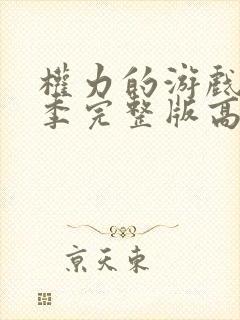 權力的游戲
季完整版高
京天東